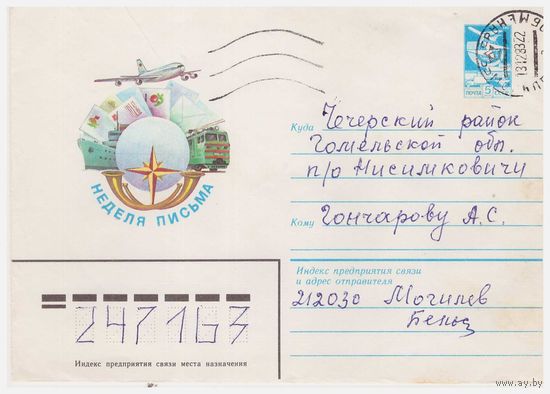 ПОЧТА
5
131283 22
НЕДЕЛЯ ПИСЬМА
Куда Чечерский район
Гомельской обл.
п/о Нисимковичи
Кому Гончарову А.С.
Индекс предприятия связи
и адрес отправителя
212030 Могилев
247163
Индекс предприятия связи места назначения
www.ay.by